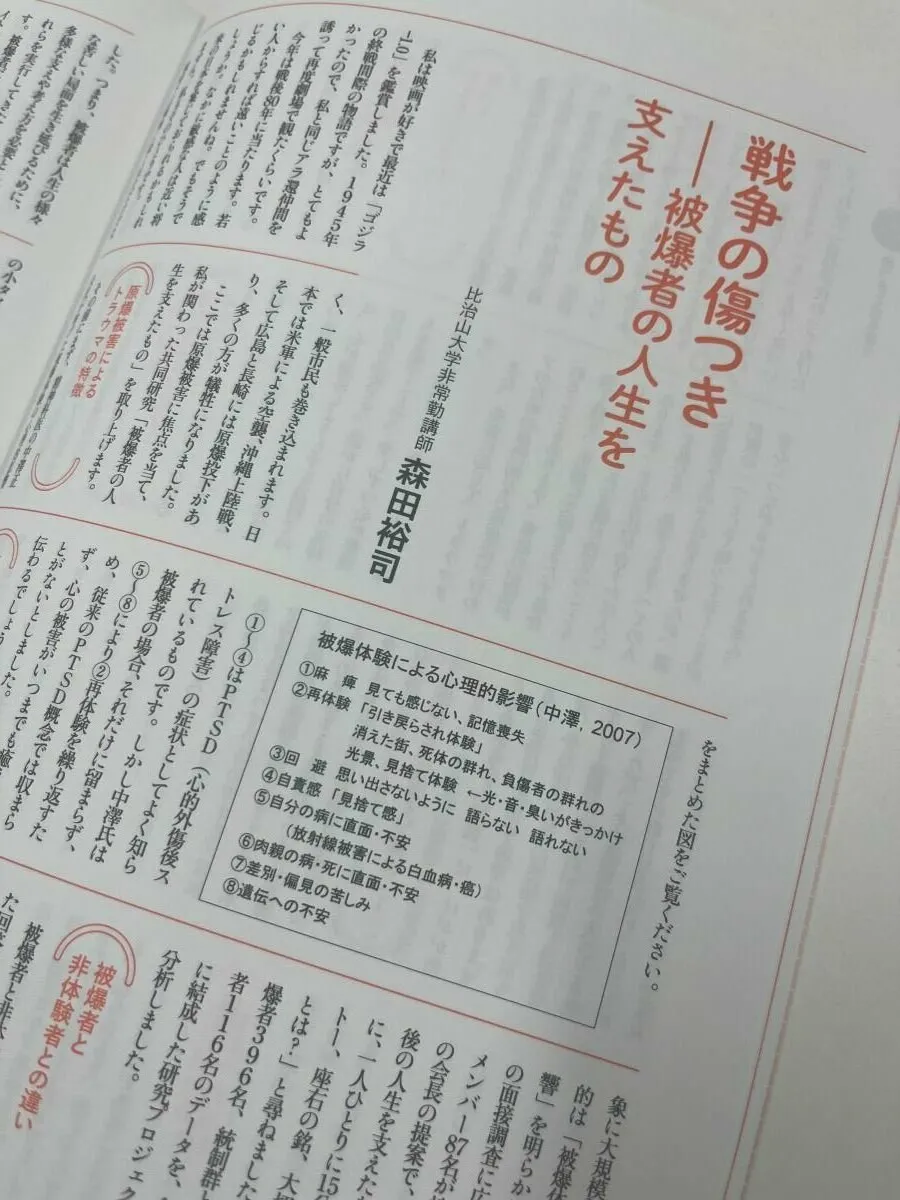 戦争の傷つき
――被爆者の人生を
支えたもの
比治山大学非常勤講師 森田裕司
私は映画が好きで最近は「ゴジラ
-1.0」を鑑賞しました。1945年
の終戦間際の物語ですが、とてもよ
かったので、私と同じアラ還仲間を
誘って再度劇場で観たくらいです。
今年は戦後80年に当たります。若
い人からすれば遠いことのように感
じるかもしれませんね。でもそうで
しょうか。なかに
した。つまり、被爆者は人生の様々
な苦しい局面を生き延びるために、
多様な支えや考え方を必要とし
れらを実行してきた
す。被爆者
く、一般市民も巻き込まれます。日
本では米軍による空襲、沖縄上陸戦、
そして広島と長崎には原爆投下があ
り、多くの方が犠牲になりました。
ここでは原爆被害に焦点を当て、
私が関わった共同研究「被爆者の人
生を支えたもの」を取り上げます。
原爆被害による
トラウマの特徴
の小タ
をまとめた図をご覧ください。
被爆体験による心理的影響(中澤, 2007)
①麻 痺 見ても感じない、記憶喪失
②再体験 「引き戻らされ体験」
消えた街、死体の群れ、負傷者の群れの
光景、見捨て体験 ←光・音・臭いがきっかけ
③回 避 思い出さないように 語らない 語れない
④自責感 「見捨て感」
⑤自分の病に直面・不安
(放射線被害による白血病・癌)
⑥肉親の病・死に直面・不安
⑦差別・偏見の苦しみ
⑧遺伝への不安
①〜④はPTSD(心的外傷後ス
トレス障害)の症状としてよく知ら
れているものです。しかし中澤氏は
被爆者の場合、それだけに留まらず、
⑤〜⑧により②再体験を繰り返すた
め、従来のPTSD概念では収まら
ず、心の被害がいつまでも癒
とがないとしました。
伝わるでしょう
象に大規模
的は「被爆体
響」を明らか
の面接調査に広
メンバー87名が
の会長の提案で、
後の人生を支えた
に、一人ひとりに15
トー、座右の銘、大
とは?」と尋ねました
爆者396名、統制群と
者116名のデータを、
に結成した研究プロジェク
分析しました。
被爆者と
非体験者との違い
被爆者と非体
た回答